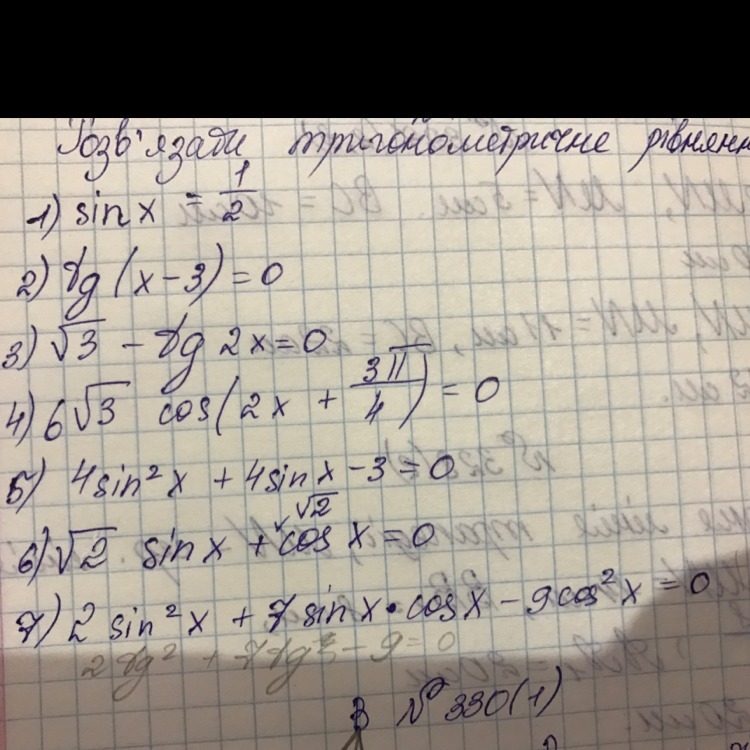 Розв'язати тригонометричне рівнянн
1) sin x = 1/2
2) tg (x - 3) = 0
3) √3 - tg 2x = 0
4) 6√3 cos(2x + 3π/4) = 0
5) 4 sin² x + 4 sin x - 3 = 0
√2
6) √2 sin x + cos x = 0
7) 2 sin² x + 7 sin x · cos x - 9 cos² x = 0
2 tg² + 7 tg - 9 = 0
№ 330(1)